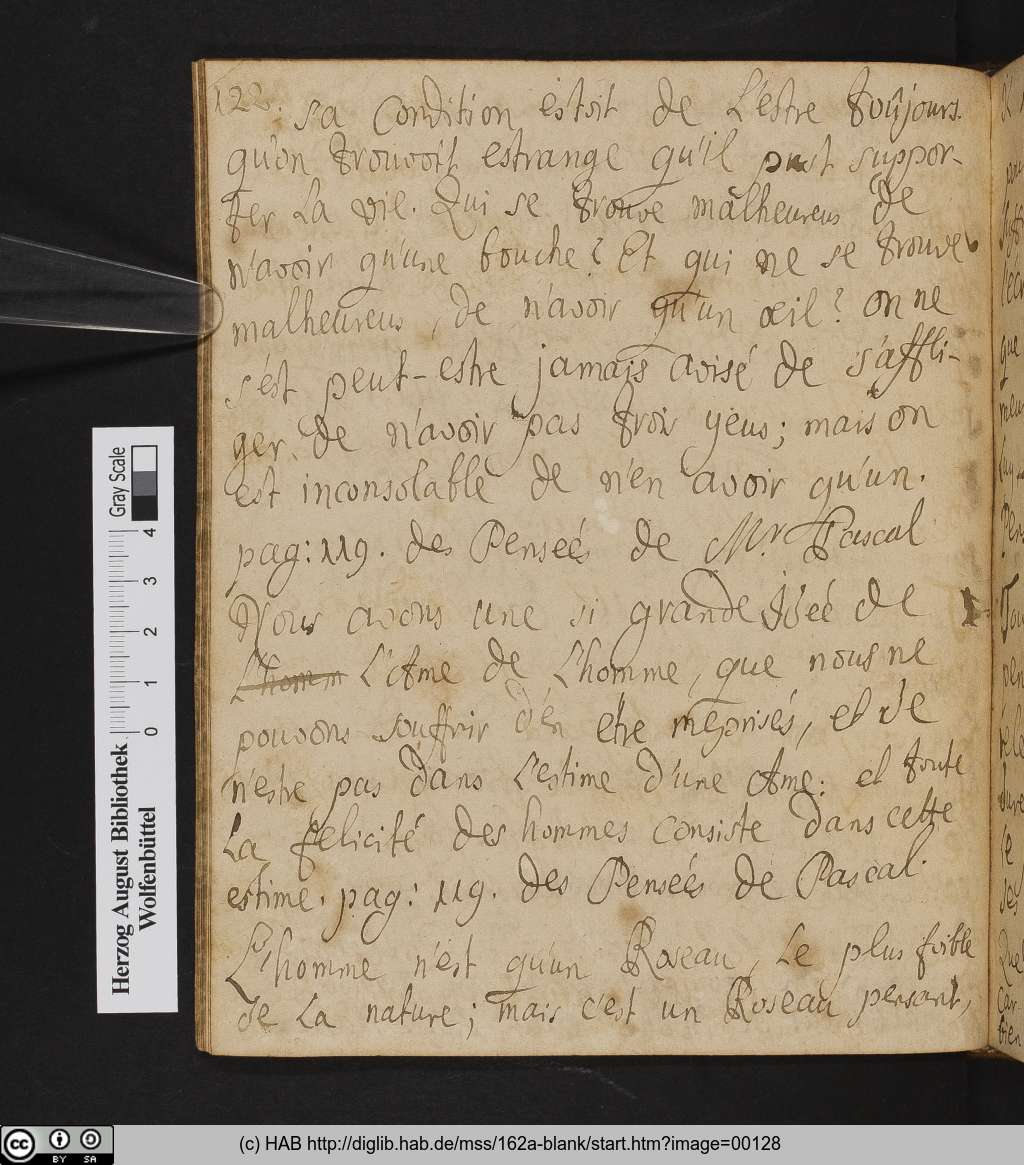 122. sa condition estoit de L'estre toûjours.
qu'on trouvoit estrange qu'il pust suppor-
ter La vie. Qui se trouve malheureus de
n'avoir qu'une bouche? Et qui ne se trouve
malheureus, de n'avoir qu'un œil? on ne
s'est peut-estre jamais avisé de s'affli-
ger de n'avoir pas trois yeus; mais on
est inconsolable de n'en avoir qu'un.
pag: 119. des Penseés de Mr. Pascal
Nous avons une si grande ideé de
L'homm L'Ame de L'homme, que nous ne
pouvons souffrir d'en etre meprisés, et de
n'estre pas dans L'estime d'une Ame: et toute
La felicité des hommes consiste dans cette
estime. pag: 119. des Penseés de Pascal.
L'homme n'est qu'un Roseau, Le plus foible
de La nature; mais c'est un Roseau pensant,
Gray Scale
0 1 2 3 4
Herzog August Bibliothek
Wolfenbüttel
cc BY SA
(c) HAB http://diglib.hab.de/mss/162a-blank/start.htm?image=00128